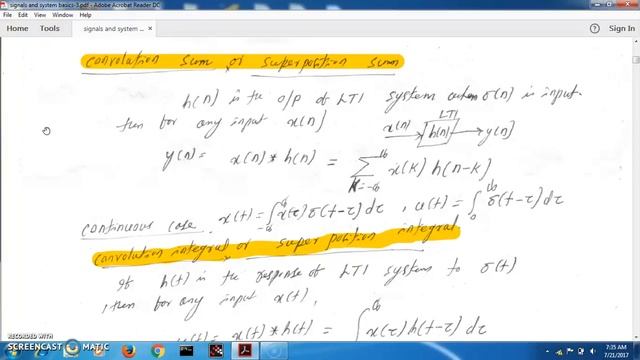 signals and system basics-3.pdf - Adobe Acrobat Reader DC
File Edit View Window Help
Home Tools signals and system ... × Sign In
convolution sum or superposition sum
h(n) is the o/p of LTI system when δ(n) is input.
then for any input x(n)
x(n) → LTI h(n) → y(n)
y(n) = x(n) * h(n) = ∑ k=-∞ ∞ x(k) h(n-k)
continuous case. x(t) = ∫ -∞ ∞ x(τ) δ(t-τ) dτ , u(t) = ∫ 0 ∞ δ(t-τ) dτ
convolution integral or superposition integral
If h(t) is the response of LTI system to δ(t)
, then for any input x(t),
y(t) = x(t) * h(t) = ∫ ∞ x(τ) h(t-τ) dτ
RECORDED WITH
SCREENCAST MATIC
7:35 AM
7/21/2017